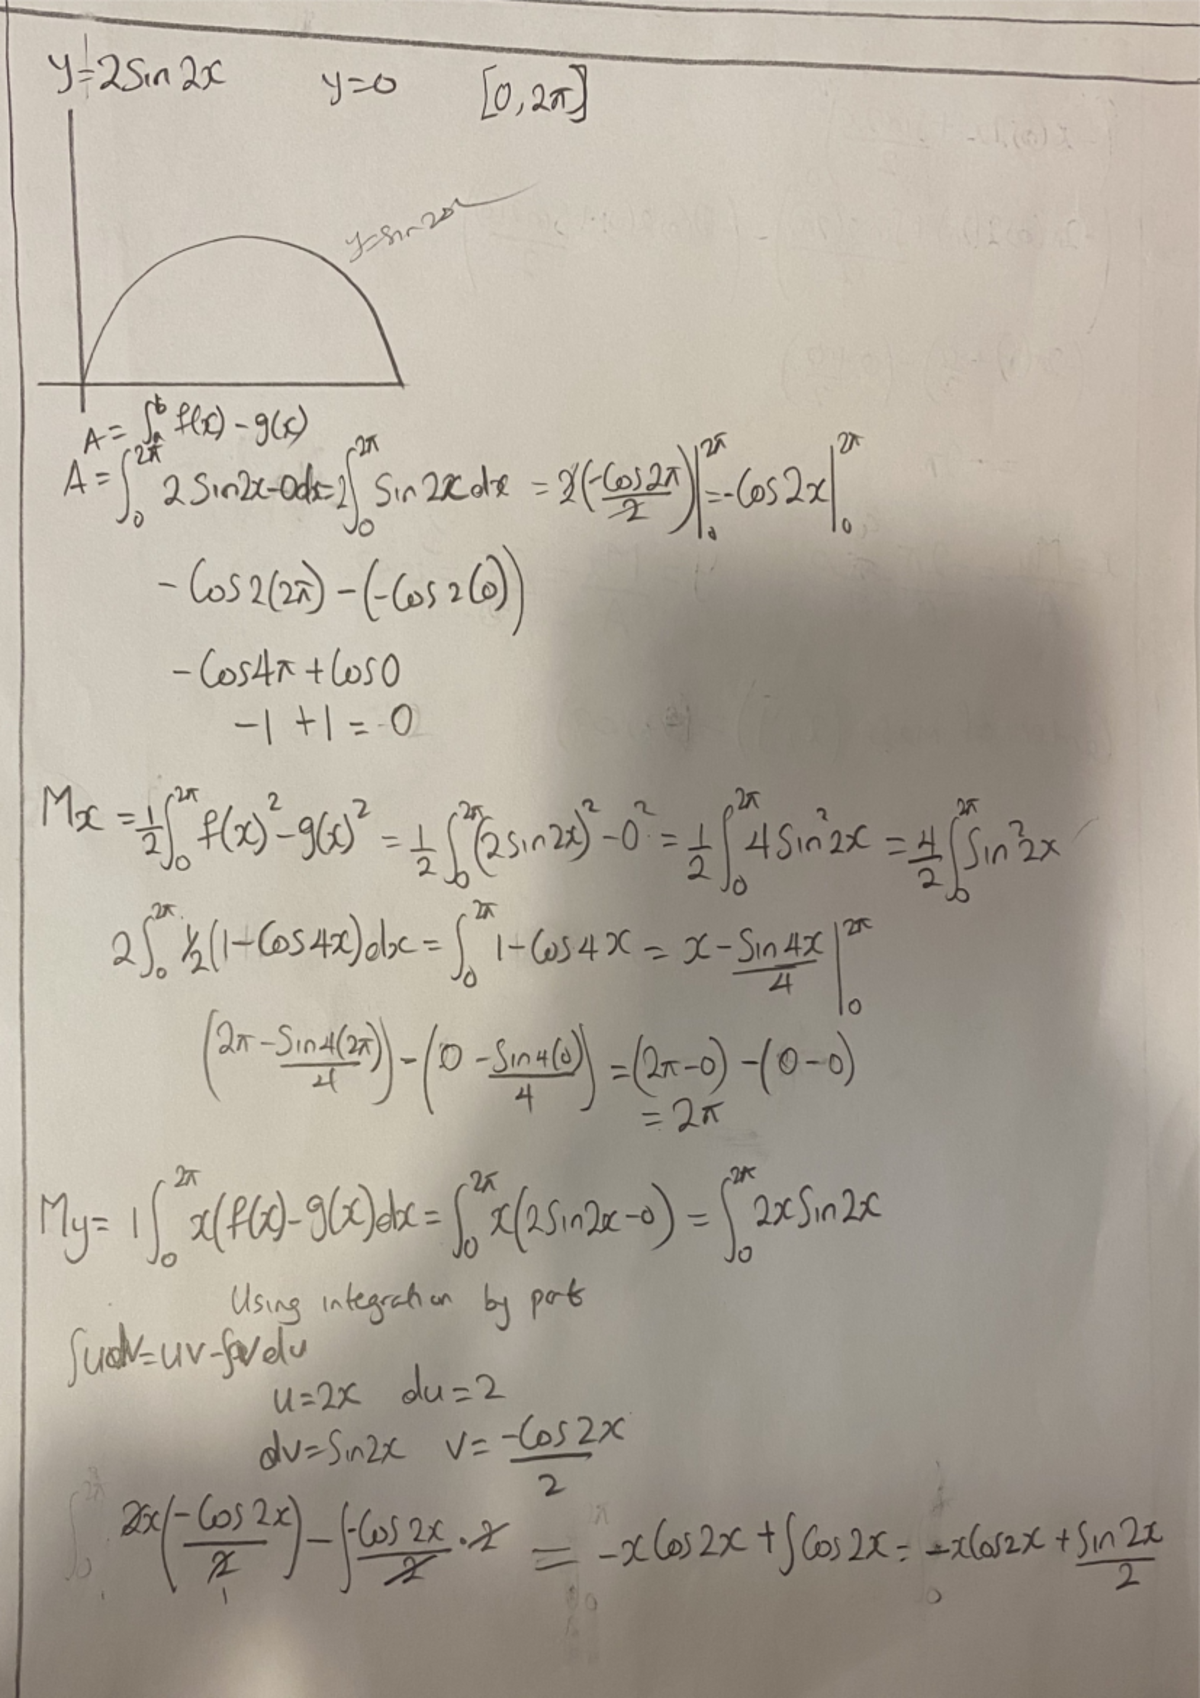 y=2Sin 2x y=0 [0,2π]
y=Sin 2x
A = ∫ₐᵇ f(x) - g(x)
A = ∫₀^2π 2 Sin2x-0dx=2∫₀^2π Sin 2x dx = 2(-Cos2π/2)|₀^2π = -Cos 2x|₀^2π
- Cos 2(2π) - (-Cos 2(0))
- Cos4π + Cos0
-1 +1 = 0
Mx = 1/2∫₀^2π f(x)² - g(x)² = 1/2 ∫₀^2π (2Sin2x)² - 0² = 1/2 ∫₀^2π 4 Sin²2x = 4/2 ∫₀^2π Sin²2x
2∫₀^2π 1/2(1-Cos4x)dx = ∫₀^2π 1-Cos4x = x - Sin4x/4 |₀^2π
(2π - Sin4(2π)/4) - (0 - Sin4(0)/4) = (2π-0) - (0-0)
= 2π
My = 1∫₀^2π x(f(x) - g(x)dx = ∫₀^2π x(2Sin2x-0) = ∫₀^2π 2xSin2x
Using integration by part
∫udv=uv-∫vdu
u=2x du=2
dv=Sin2x v= -Cos2x/2
2x(-Cos2x/2) - ∫-Cos2x/2 · 2 = -xCos2x + ∫Cos2x = -xCos2x + Sin2x/2